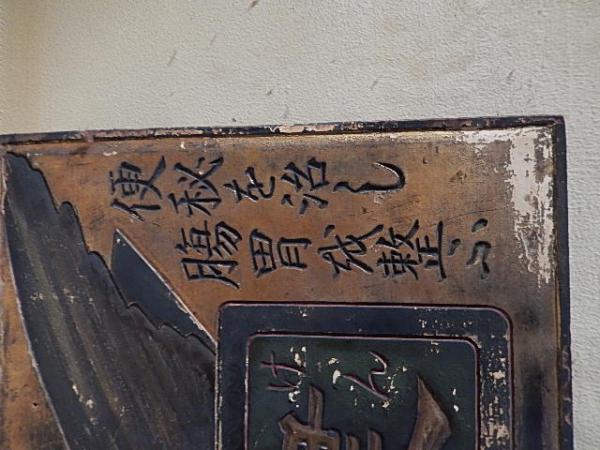 便秘を治し
腸胃を整ふ
けん